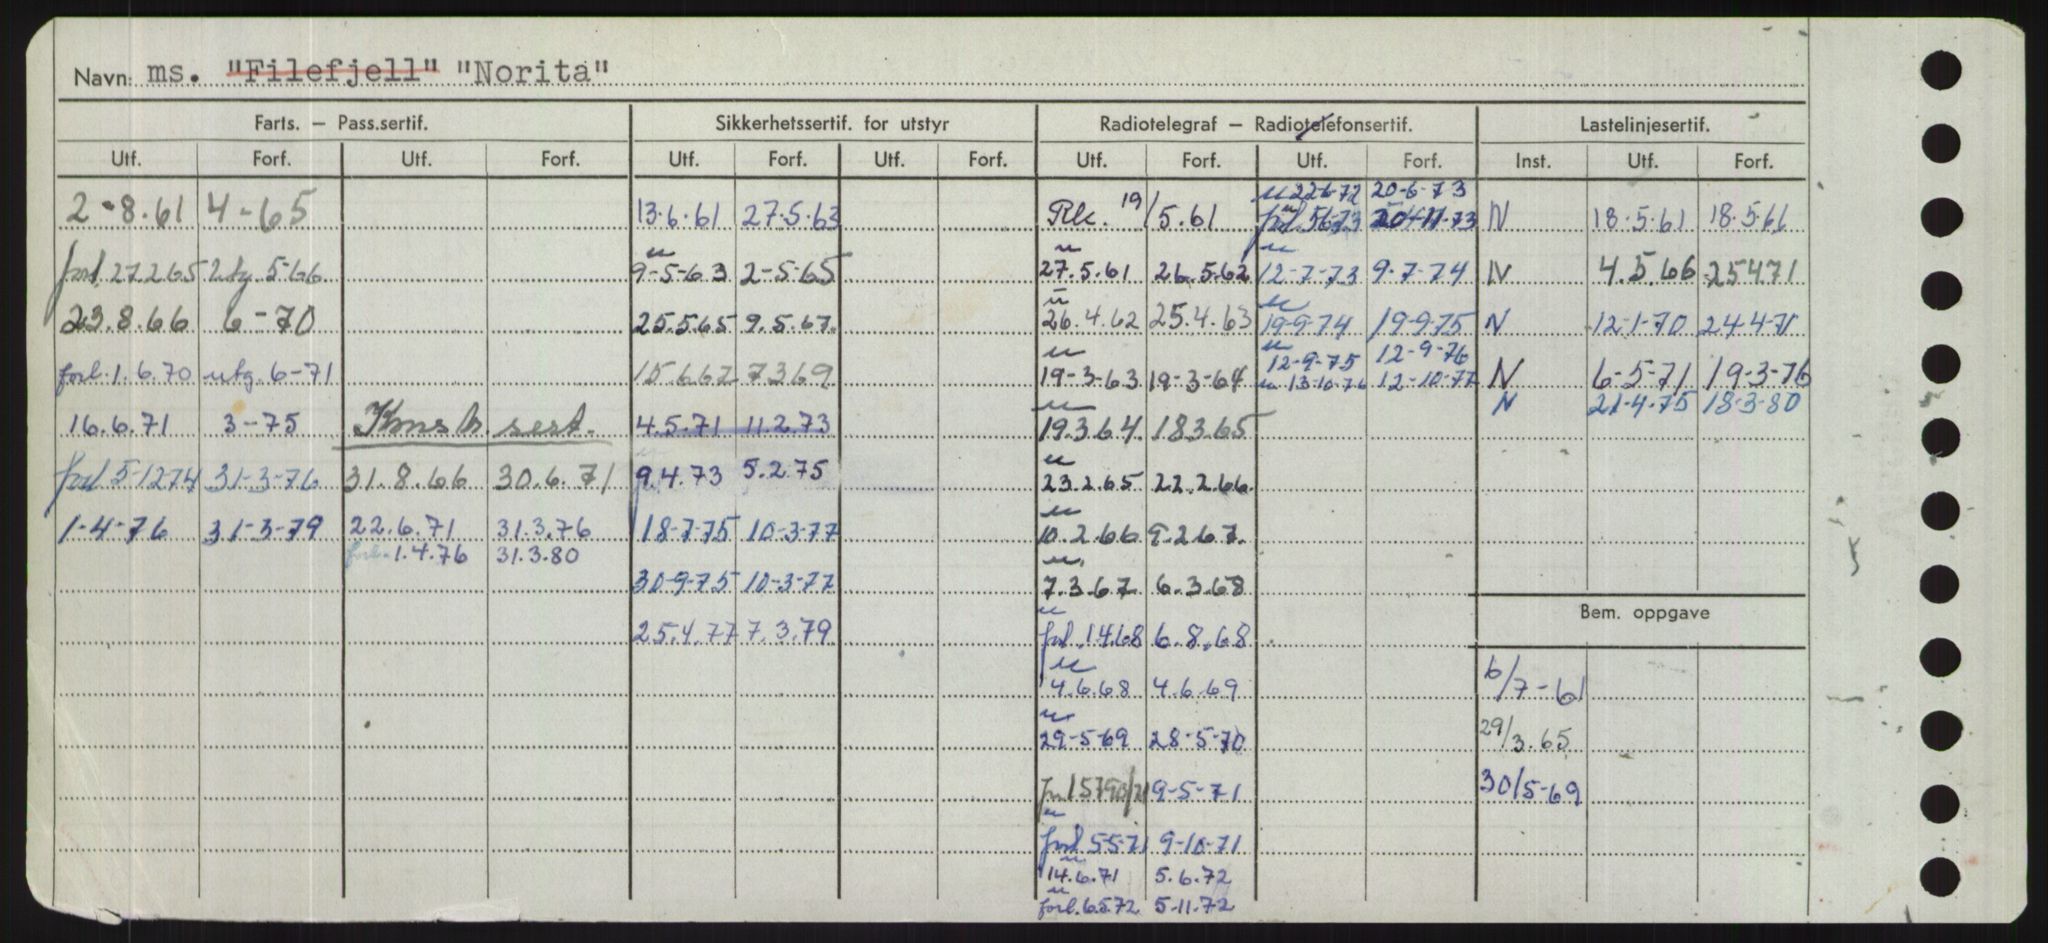 Navn: ms. "Filefjell" "Norita"
Farts. — Pass.sertif. Sikkerhetssertif. for utstyr Radiotelegraf — Radiotelefonsertif. Lastelinjesertif.
Utf. Forf. Utf. Forf. Utf. Forf. Utf. Forf. Utf. Forf. Utf. Forf. Inst. Utf. Forf.
u 22-6-72 20-6-73
2-8.61 4-65 13.6.61 27.5.63 Rk. 19/5.61 N 18.5.61 18.5.66
u u u
forl. 27.2.65 utg. 5-66 9-5-63 2-5-65 27.5.61 26.5.62 12-7-73 9-7-74 N 4.5.66 25471
u u
23.8.66 6-70 25.5.65 9.5.67. 26.4.62 25.4.63 19-9-74 19-9-75 N 12-1-70 24-4-71
u u 12-9-75 12-9-76
forl. 1.6.70 utg. 6-71 15.6.67 7369 19-3-63 19-3-64 u 13-10-76 12-10-77 N 6-5-71 19-3-76
u N 21-4-75 18-3-80
16.6.71 3-75 Konsk. sert. 4.5.71 11.2.73 19.3.64. 18365
u
forl 5-12 74 31-3-76 31.8.66 30.6.71 9.4.73 5.2.75 23.2.65 22.2.66.
u
1-4-76 31-3-79 22.6.71 31.3.76 18-7-75 10-3-77 10.2.66 9.267.
forl. 1.4.76 31.3.80
u
30-9-75 10-3-77 7.3.67 6.3.68
Bem. oppgave
u
25.4.77 7.3.79 forl. 1.4.68 6.8.68
u
4.6.68 4.6.69 6/7-61
u
29-5-69 28-5-70 29/3.65
9-5-71 30/5-69
u
forl. 5-5-71 9-10-71
u
14.6.71 5.6.72
u
forl. 6.5.72 5-11.72